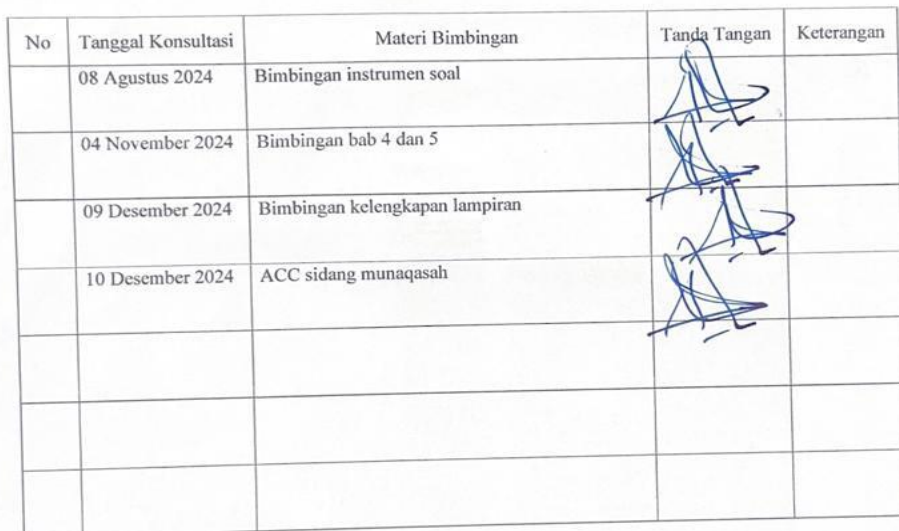 No Tanggal Konsultasi Materi Bimbingan Tanda Tangan Keterangan
08 Agustus 2024 Bimbingan instrumen soal
04 November 2024 Bimbingan bab 4 dan 5
09 Desember 2024 Bimbingan kelengkapan lampiran
10 Desember 2024 ACC sidang munaqasah